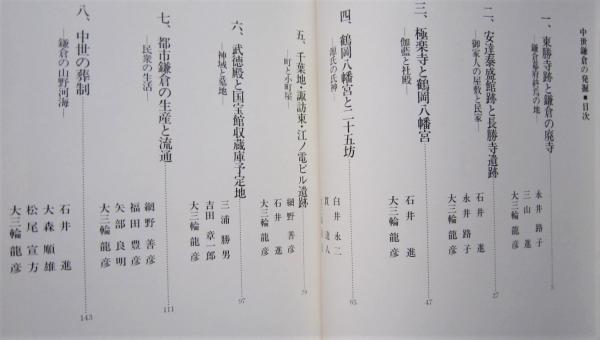 中世鎌倉の発掘■目次
一、東勝寺跡と鎌倉の廃寺
―鎌倉幕府終焉の地―
永井路子
三山進
大三輪龍彦
二、安達泰盛館跡と長勝寺遺跡
―御家人の屋敷と民家―
石井進
永井路子
大三輪龍彦
27
三、極楽寺と鶴岡八幡宮
―伽藍と社殿―
石井進
大三輪龍彦
47
四、鶴岡八幡宮と二十五坊
―源氏の氏神―
白井永二
貫達人
65
五、千葉地・諏訪東・江ノ電ビル遺跡
―町と小町屋―
網野善彦
石井進
大三輪龍彦
79
六、武徳殿と国宝館収蔵庫予定地
―神域と墓地―
三浦勝男
吉田章一郎
大三輪龍彦
97
七、都市鎌倉の生産と流通
―民衆の生活―
網野善彦
福田豊彦
矢部良明
大三輪龍彦
111
八、中世の葬制
―鎌倉の山野河海―
石井進
大森順雄
松尾宣方
大三輪龍彦
143